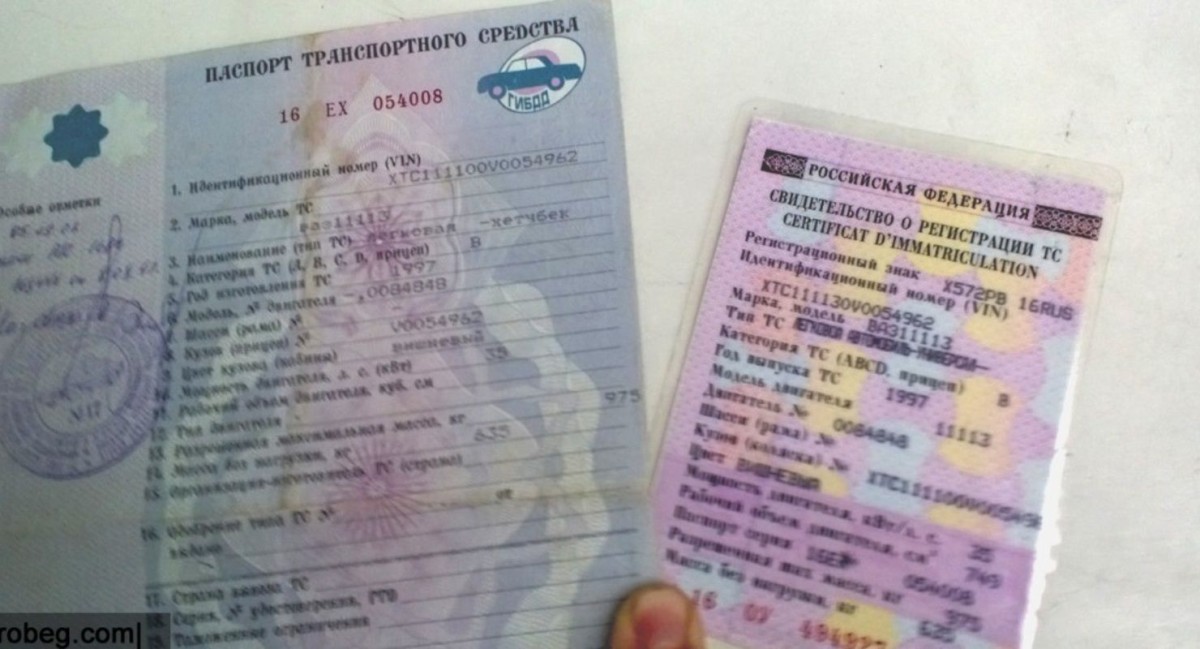 ПАСПОРТ ТРАНСПОРТНОГО СРЕДСТВА
16 ЕХ 054008
ГИБДД
Особые отметки
1. Идентификационный номер (VIN)
XTC111100V0054962
2. Марка, модель ТС
ВАЗ11113
3. Наименование (тип ТС) легковая -хетчбек
4. Категория ТС (А, В, С, D, прицеп) В
5. Год изготовления ТС 1997
6. Модель, № двигателя -,0084848
7. Шасси (рама) № -
8. Кузов (прицеп) № V0054962
9. Цвет кузова (кабины) вишневый
10. Мощность двигателя, л. с. (кВт) 35
11. Рабочий объем двигателя, куб. см
12. Тип двигателя
13. Разрешенная максимальная масса, кг 975
14. Масса без нагрузки, кг 635
15. Организация-изготовитель ТС (страна)
16. Одобрение типа ТС № от
выдано
17. Страна вывоза ТС
18. Серия, № удостоверения, ГТД
19. Таможенные ограничения
№17
robeg.com|
РОССИЙСКАЯ ФЕДЕРАЦИЯ
СВИДЕТЕЛЬСТВО О РЕГИСТРАЦИИ ТС
CERTIFICAT D'IMMATRICULATION
Регистрационный знак Х572РВ 16RUS
Идентификационный номер (VIN)
XTC111130V0054962
Марка, модель ВАЗ11113
Тип ТС
Категория ТС (ABCD, прицеп) В
Год выпуска ТС 1997
Модель двигателя 11113
Двигатель № 0084848
Шасси (рама) №
Кузов (коляска) №
Цвет ВИШНЕВЫЙ
Мощность двигателя, кВт/л. с. 35
Рабочий объем двигателя, см³ 749
Паспорт серия 054008
Разрешенная max масса, кг 975
Масса без нагрузки, кг 635
16